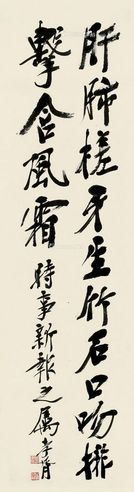 肝肺槎牙生竹石口吻排
擊含風霜
時事新報之屬孝胥